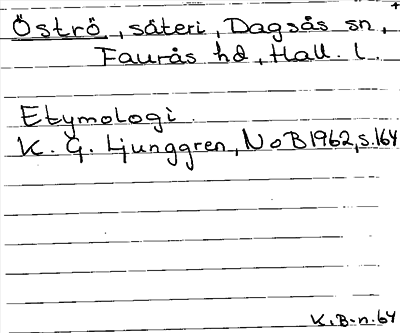 Öströ, säteri, Dagsås sn,
Faurås hd, Hall. l.
Etymologi
K. G. Ljunggren, NoB 1962, s. 164
K. B-n. 64